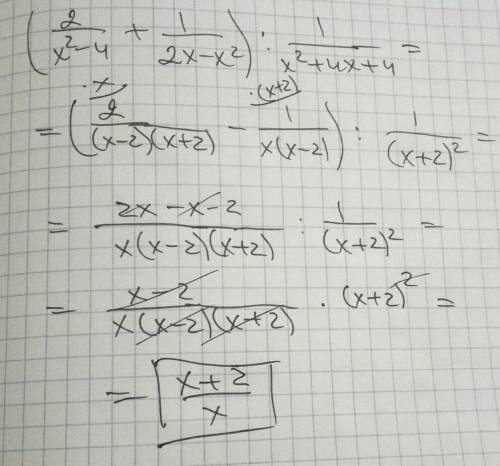 (2/(x²-4) + 1/(2x-x²)) : 1/(x²+4x+4) =
·x ·(x+2)
= (2/((x-2)(x+2)) - 1/(x(x-2))) : 1/(x+2)² =
= (2x-x-2)/(x(x-2)(x+2)) : 1/(x+2)² =
= (x-2)/(x(x-2)(x+2)) · (x+2)² =
= (x+2)/x